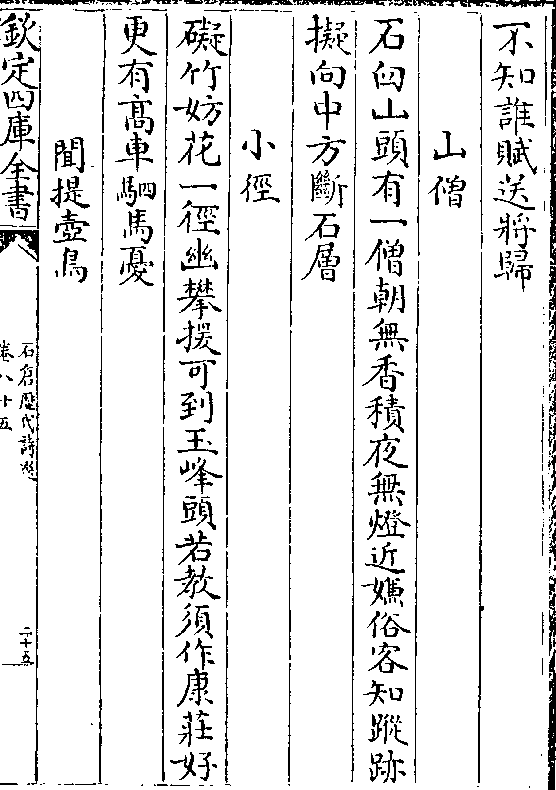 不知誰賦送將歸
山僧
石臼山頭有一僧朝無香積夜無燈近嫌俗客知蹤跡
擬向中方斷石層
小徑
礙竹妨花一徑幽攀援可到玉峰頭若教須作康莊好
更有髙車駟馬憂
聞提壺鳥
欽定四庫全書
石倉歷代詩選
卷八十五
二十五